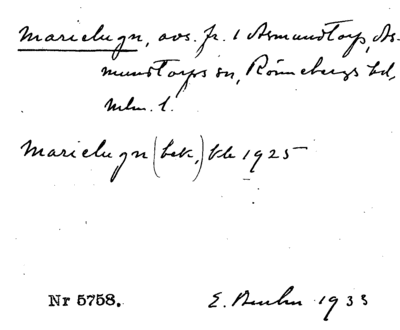 Marielugn, avs. fr. 1 Asmundtorp, As-
mundtorps sn, Rönnebergs hd,
Mlm. l.
Marielugn (bek,) kbl 1925
Nr 5758.
E. 1933